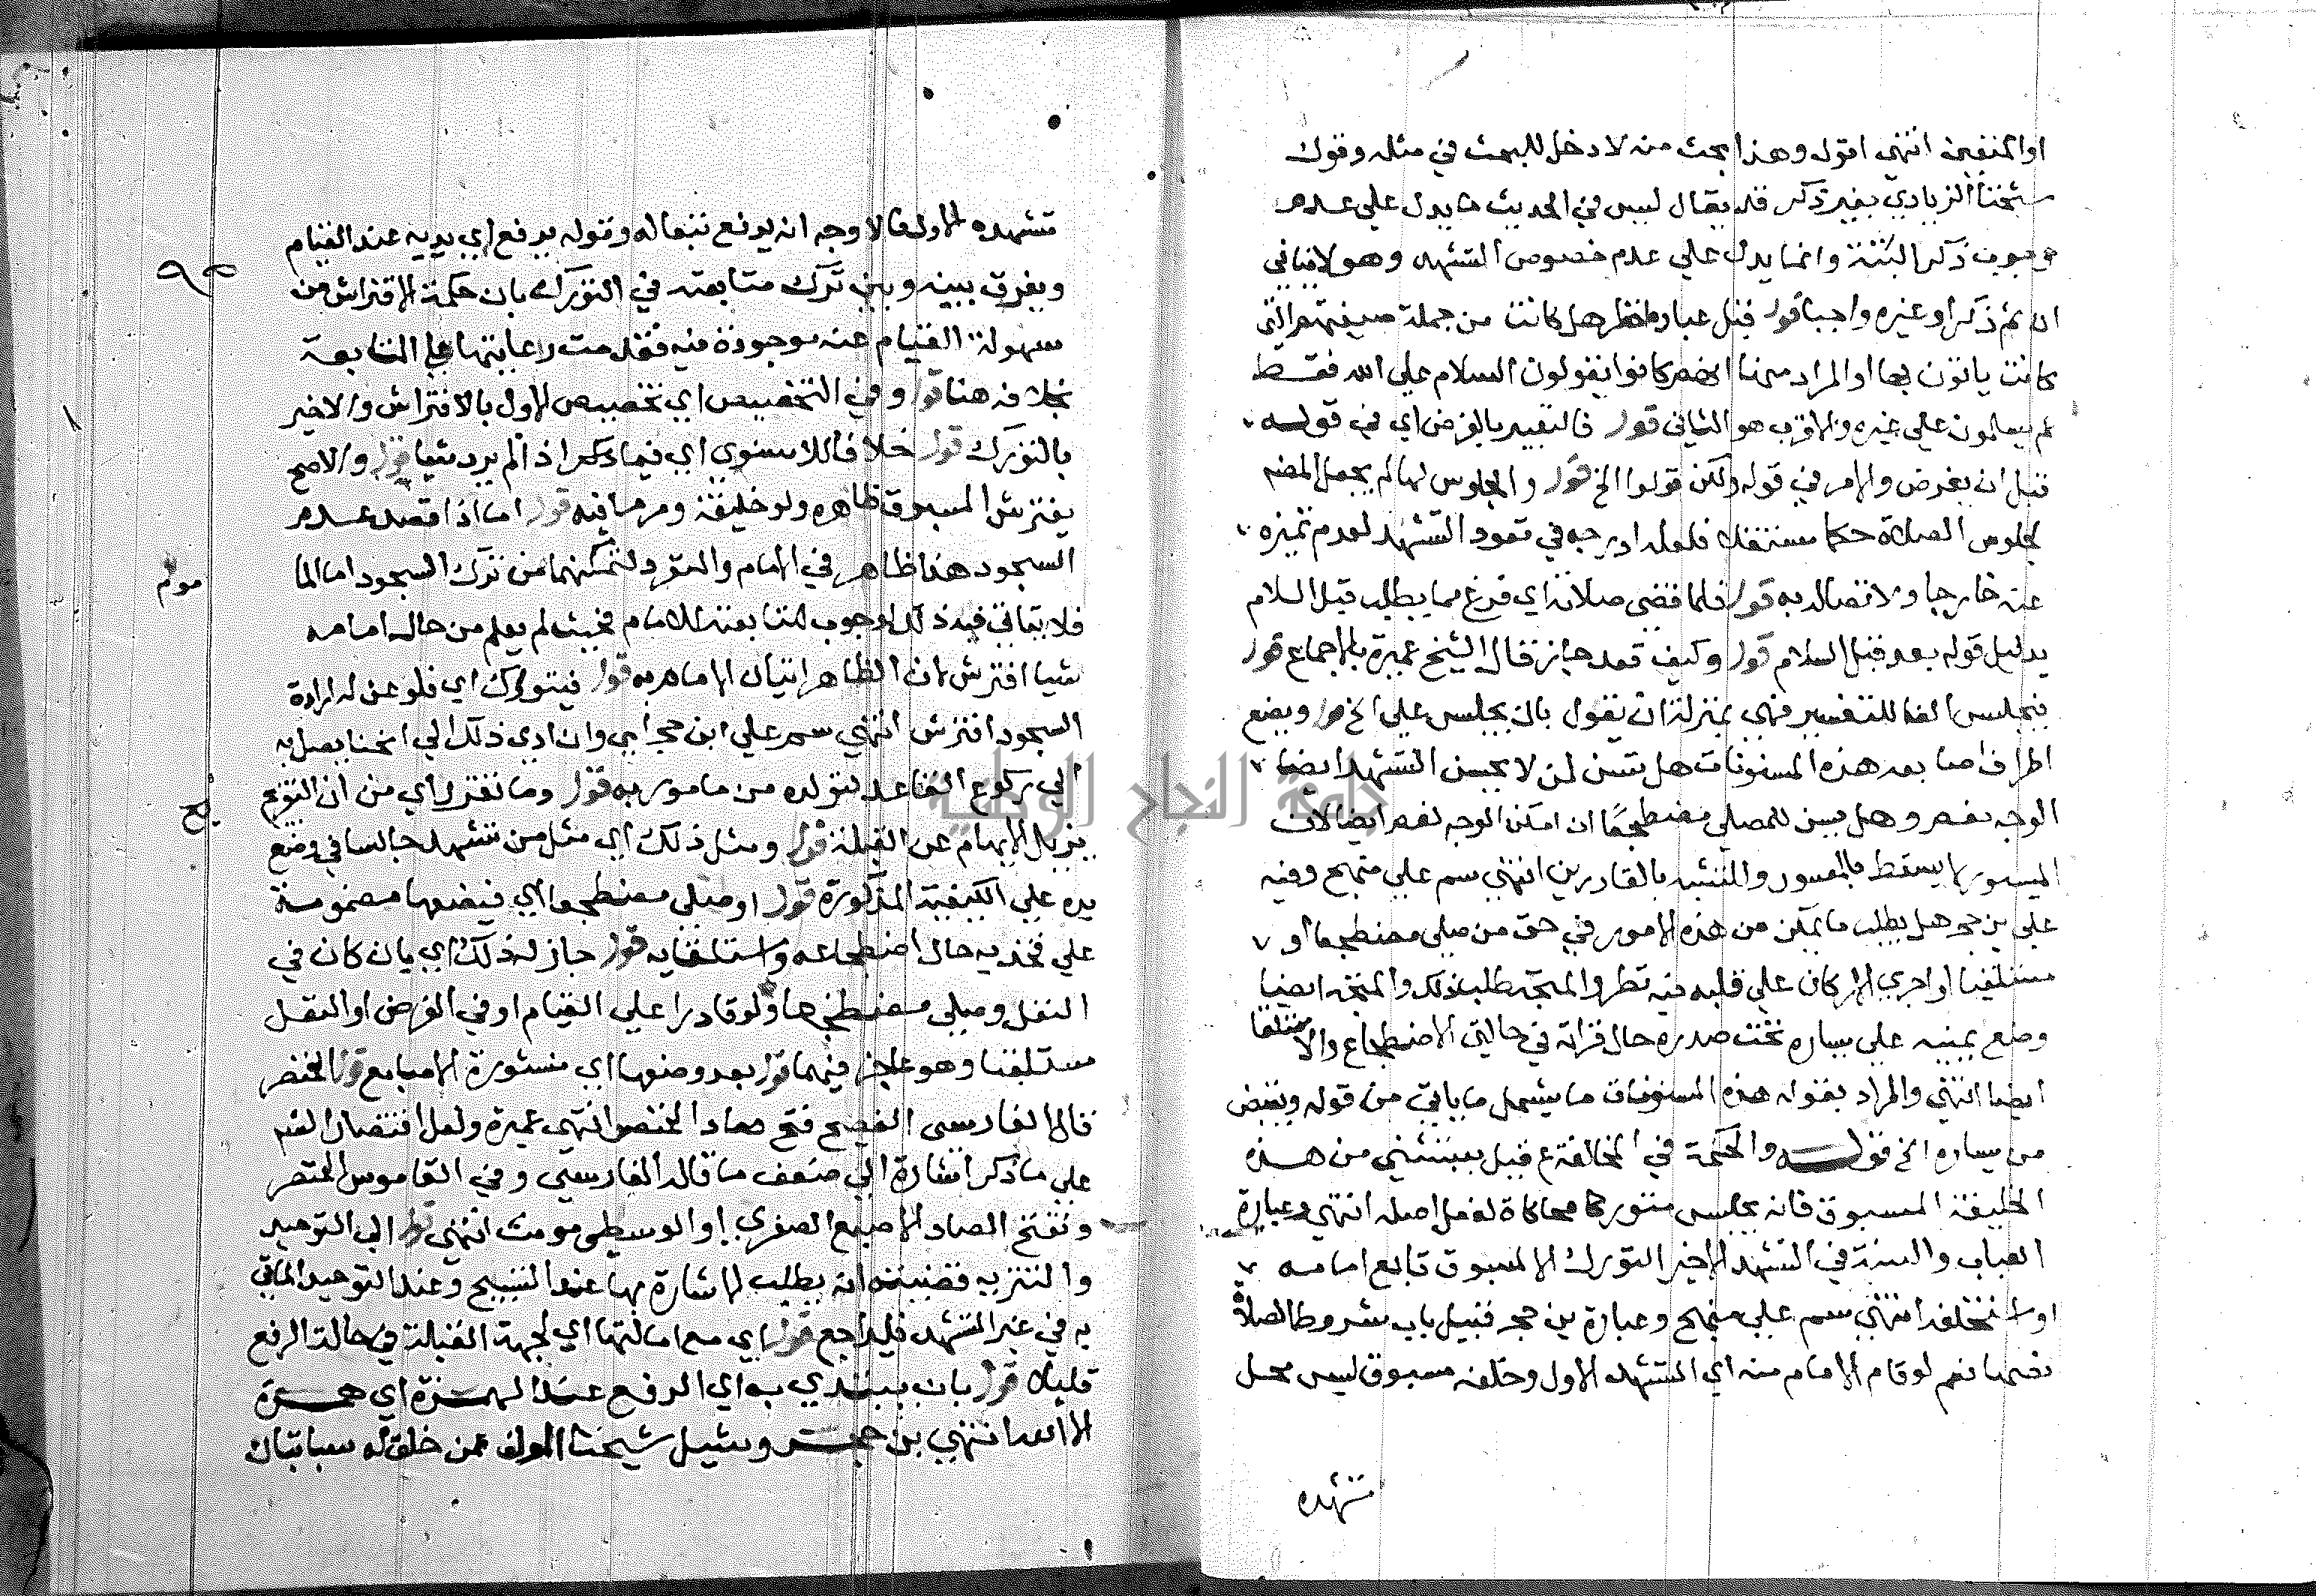 او المنفين انتهى اقول وهذا بحث من لا دخل للبحث في مثله وقول
شيخنا الزيادي بغير ذكر قد يقال ليس في الحديث ما يدل علي عدم
وجوب ذكر البتة وانما يدل علي عدم خصوص التشهد وهو لا ينافي
ان ثم ذكرا وغيره واجبا قوله قبل عباده انظر هل كانت من جملة صيغتهم التي
كانت ياتون بها او المراد منها انهم كانوا يقولون السلام علي الله فقط
ثم يسلمون علي غيره والاقرب هو الثاني قوله فالتعبير بالفرض اي في قوله
قبل ان يفرض والامر في قوله ولكن قولوا الخ قوله والجلوس لها لم يجعل المصنم
لجلوس الصلاة حكما مستقلا فلعله ادرجه في قعود التشهد لعدم تميزه
عنه خارجا ولاتصاله به قوله فلما قضى صلاته اي فرغ مما يطلب قبل السلام
بدليل قوله بعد قبل السلام قوله وكيف قعد جاز قال الشيخ عميرة بالاجماع قوله
فيجلس الفا للتفسير فهي بمنزلة ان يقول بان يجلس علي الخ قوله ويضع
اطراف اصابعه هذه المسنونات هل تسن لمن لا يحسن التشهد ايضا
الوجه نعم وهل يسن للمصلي مضطجعا ان امكن الوجه نعم ايضا لان
الميسور لا يسقط بالمعسور وللتشبه بالقادرين انتهى سم علي منهج وفيه
علي بن حجر هل يطلب ما يمكن من هذه الامور في حق من صلي مضطجعا او
مستلقيا او اجري الاركان علي قلبه فيه نظر والمتجه طلب ذلك والمتجه ايضا
وضع يمينه علي يساره تحت صدره حال قراته في حالتي الاضطجاع والاستلقا
ايضا انتهي والمراد بقوله هذه المسنونات ما يشمل ما ياتي من قوله ويقبض
من يساره الخ قوله والحكمة في المخالفة ع قيل يستثني من هذه
الخليفة المسبوق فانه يجلس متوركا محاكاة لفعل اصله انتهي وعبارة
العباب والسنة في التشهد الاخير التورك الا لمسبوق تابع امامه
او استخلفه انتهي سم علي منهج وعبارة بن حجر قبيل باب شروط الصلاة
نصها نعم لو قام الامام منه اي التشهد الاول وخلفه مسبوق ليس محل
تشهده
تشهده الاول فالاوجه انه يرفع تبعا له وقوله يرفع اي يديه عند القيام
ويفرق بينه وبين ترك متابعته في التورك بان حكمة الافتراش من
سهولة القيام عنه موجودة فيه فقدمت رعايتها علي المتابعة
بخلافه هنا قوله وفي التخصيص اي تخصيص الاول بالافتراش والاخير
بالتورك قوله خلافا للاسنوي اي فيما ذكر اذا لم يرد شيا قوله والاصح
يفترش المسبوق ظاهره ولو خليفة ومر ما فيه قوله اما اذا قصد عدم
السجود هذا ظاهر في الامام والمنفرد لتمكنهما من ترك السجود اما الما
موم
فلا يتاتي فيه ذلك لوجوب المتابعة للامام فحيث لم يعلم من حال امامه
شيا افترش لان الظاهر اتيان الامام به قوله فيتورك اي فلو عن له ارادة
السجود افترش انتهي سم علي ابن حجر اي وان ادي ذلك الي انحنا يصل به
الي ركوع القاعد لتولده من مامور به قوله وما تقرر اي من ان التفريج
يح
يزيل الابهام عن القبلة قوله ومثل ذلك اي مثل من تشهد جالسا في وضع
يده علي الكيفية المذكورة قوله او صلي مضطجعا اي فيضعها مضمومة
علي فخذيه حال اضطجاعه واستلقايه قوله جاز له ذلك اي بان كان في
النفل وصلي مضطجعا ولو قادرا علي القيام او في الفرض او النفل
مستلقيا وهو عاجز فيهما قوله بعد وضعها اي منشورة الاصابع قوله الخنصر
قال الفارسي الفصيح فتح صاد الخنصر انتهي عميرة ولعل اقتصار الشم
علي ما ذكر اشارة الي ضعف ما قاله الفارسي وفي القاموس الخنصر
وتفتح الصاد الاصبع الصغري او الوسطي مونث انتهي قوله الي التوحيد
والتنزيه قضيته انه يطلب الاشارة بها عند التسبيح وعند التوحيد الماتي
به في غير التشهد فليراجع قوله اي مع امالتها اي لجهة القبلة في حالة الرفع
قليلا قوله بان يبتدي به اي الرفع عند الهمزة اي همزة
الا الله انتهي بن حجر وسئل شيخنا المولف عمن خلق له سبابتان